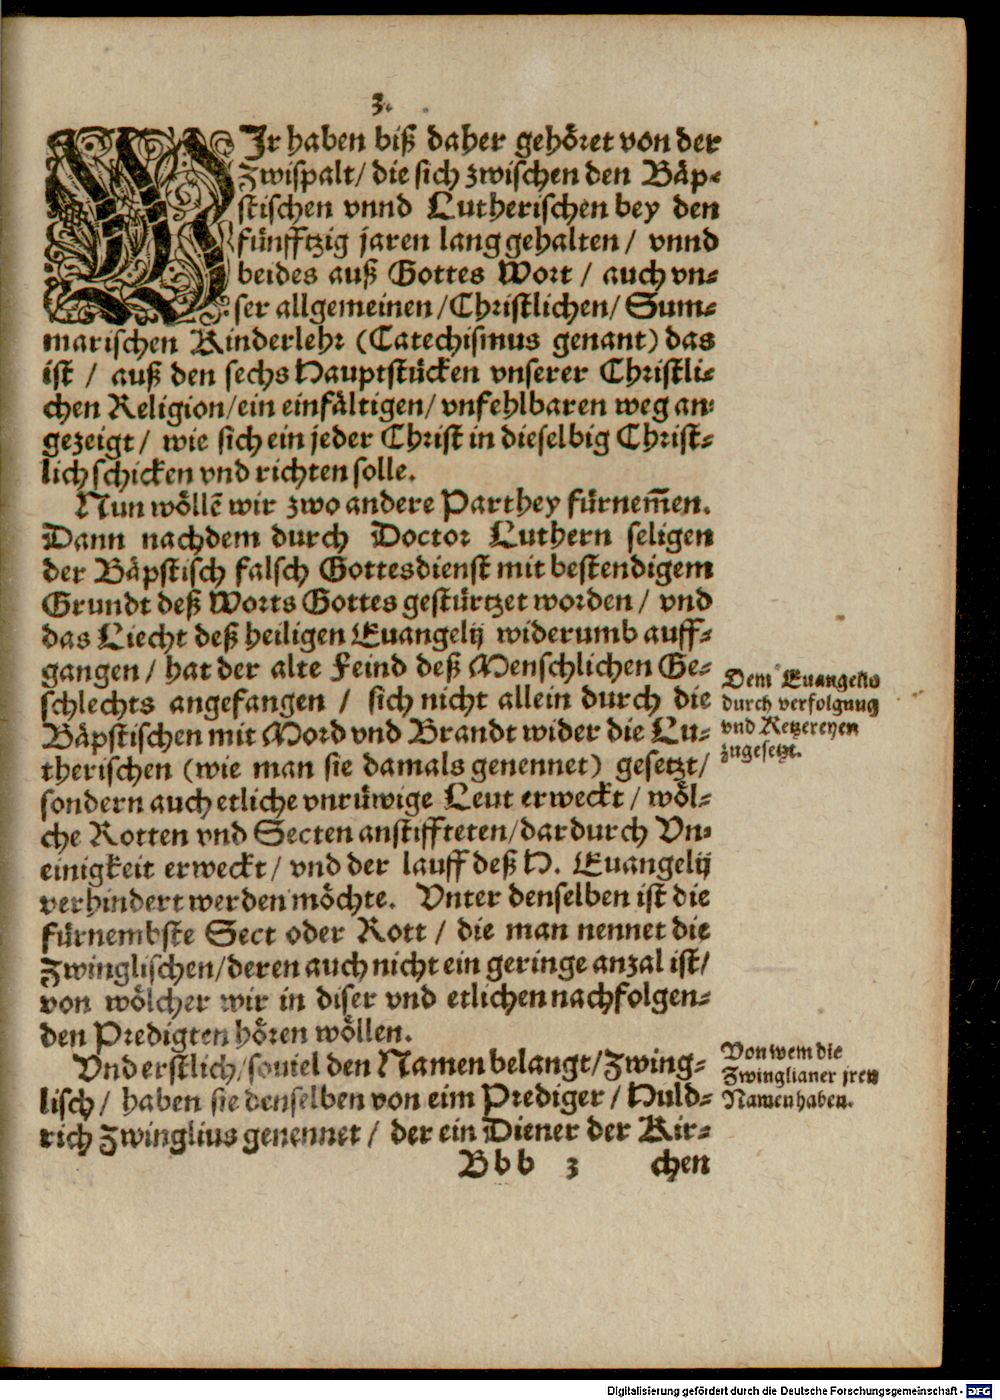 3.
WIr haben biß daher gehöret von der
Zwispalt/ die sich zwischen den Bäp-
stischen vnnd Lutherischen bey den
fünfftzig jaren lang gehalten / vnnd
beides auß Gottes Wort / auch vn-
ser allgemeinen/Christlichen/ Sum-
marischen Kinderlehr (Catechismus genant) das
ist / auß den sechs Hauptstücken vnserer Christli-
chen Religion/ein einfältigen/ vnfehlbaren weg an-
gezeigt/ wie sich ein jeder Christ in dieselbig Christ-
lich schicken vnd richten solle.
Nun wöllē wir zwo andere Parthey fürnem̄en.
Dann nachdem durch Doctor Luthern seligen
der Bäpstisch falsch Gottesdienst mit bestendigem
Grundt deß Worts Gottes gestürtzet worden / vnd
das Liecht deß heiligen Euangelij widerumb auff-
gangen / hat der alte Feind deß Menschlichen Ge-
schlechts angefangen / sich nicht allein durch die
Bäpstischen mit Mord vnd Brandt wider die Lu-
therischen (wie man sie damals genennet) gesetzt/
sondern auch etliche vnrüwige Leut erweckt / wöl-
che Rotten vnd Secten anstiffteten/dardurch Vn-
einigkeit erweckt/ vnd der lauff deß H. Euangelij
verhindert werden möchte. Vnter denselben ist die
fürnembste Sect oder Rott / die man nennet die
Zwinglischen/deren auch nicht ein geringe anzal ist/
von wölcher wir in diser vnd etlichen nachfolgen-
den Predigten hören wöllen.
Vnd erstlich/souiel den Namen belangt/Zwing-
lisch/ haben sie denselben von eim Prediger / Huld-
rich Zwinglius genennet / der ein Diener der Kir-
Bbb 3 chen
Dem Euangelio
durch verfolgung
vnd Ketzereyen
zugesetzt.
Von wem die
Zwinglianer jren
Namen haben.
Digitalisierung gefördert durch die Deutsche Forschungsgemeinschaft - DFG